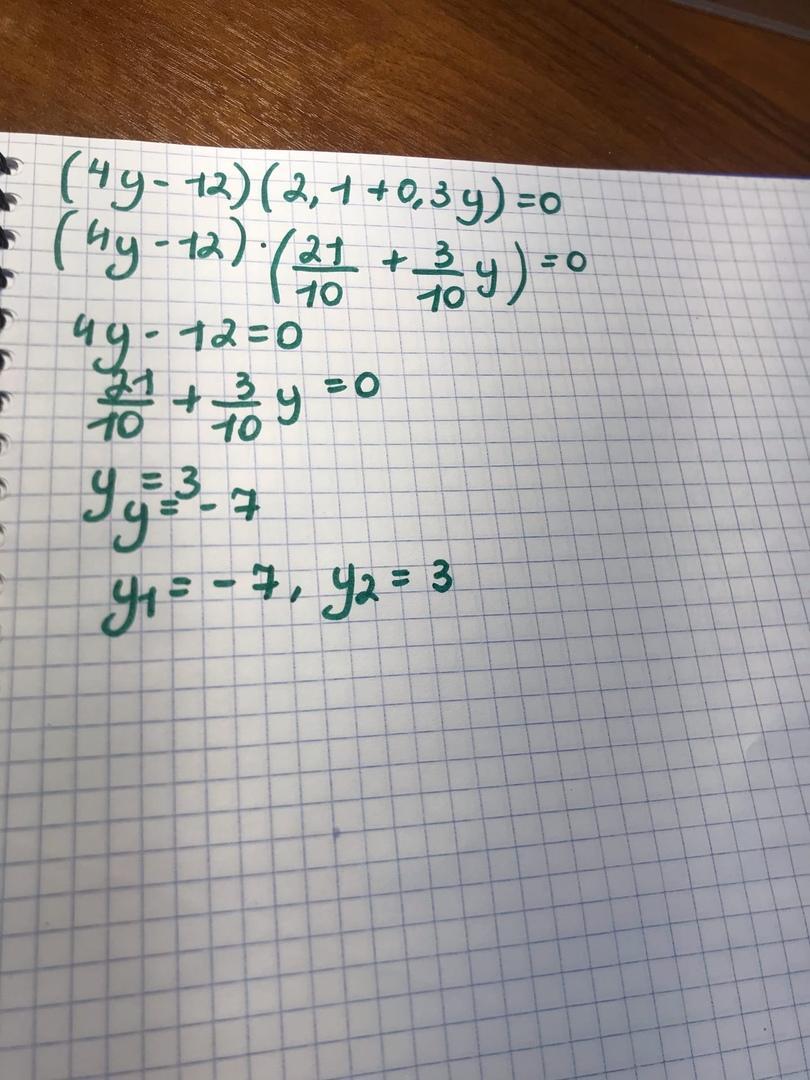 (4y - 12)(2,1 + 0,3y) = 0
(4y - 12) · (21/10 + 3/10 y) = 0
4y - 12 = 0
21/10 + 3/10 y = 0
y = 3
y = - 7
y1 = - 7, y2 = 3